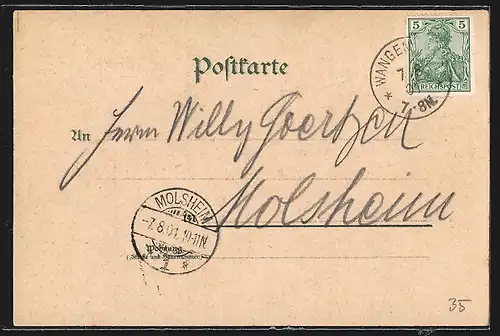 5 5
REICHSPOST
WANGEN
7. 8
7-8N.
Postkarte
An Herrn Willy Goertzell
Molsheim
MOLSHEIM
-7.8.01. 10-11N.
1
*
Wohnung
(Straße und Hausnummer)
35